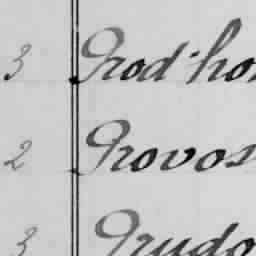 3 Prod'ho
2 Provos
3 Prudo